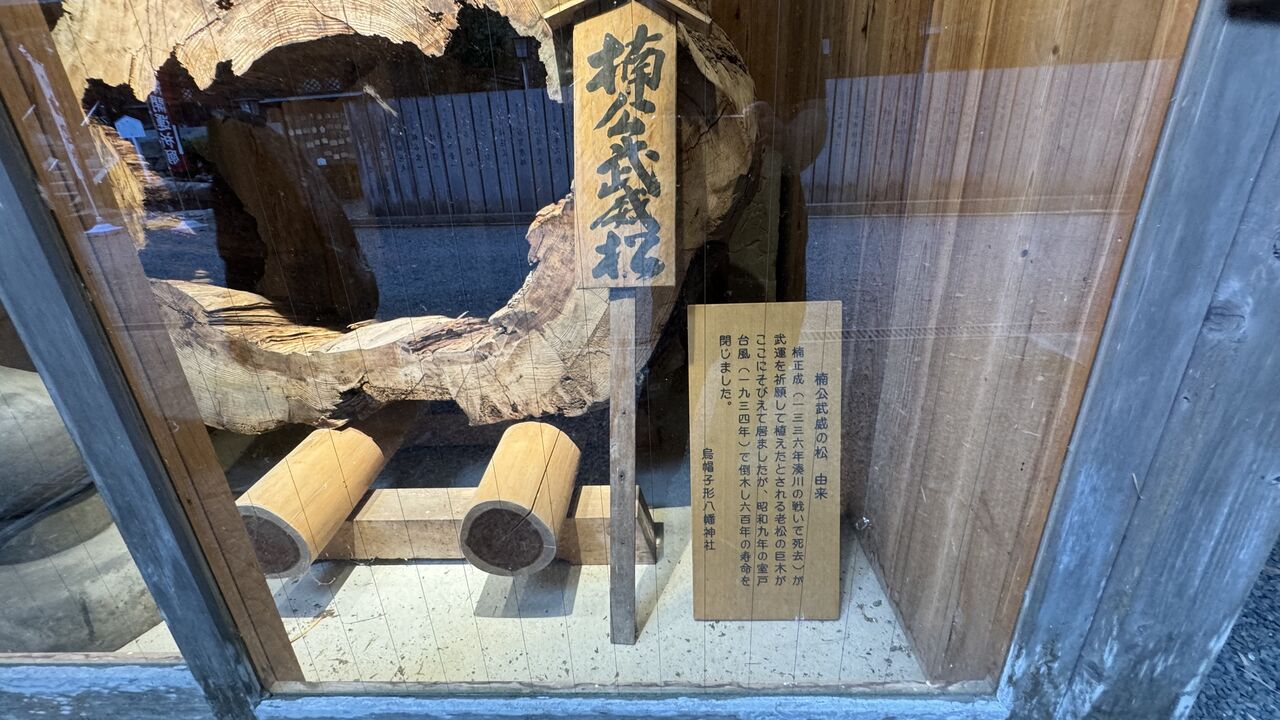 楠公武威松
楠公武威の松　由来
楠正成（一三三六年湊川の戦いで死去）が
武運を祈願して植えたとされる老松の巨木が
ここにそびえて居ましたが、昭和九年の室戸
台風（一九三四年）で倒木し六百年の寿命を
閉じました。
烏帽子形八幡神社